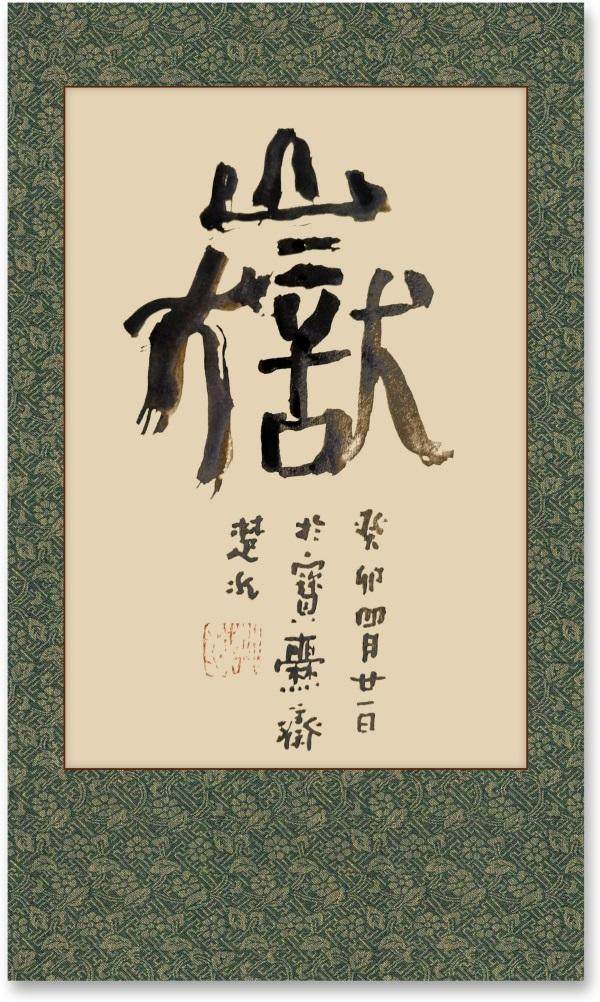 嶽
癸卯四月廿一日
於寶齋
楚